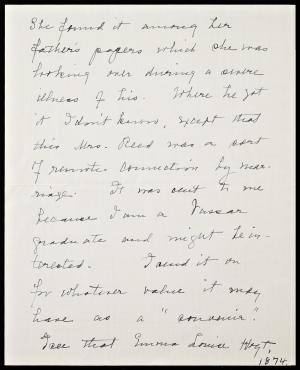 She found it among her
father's papers which she was
looking over during a severe
illness of his. Where he got
it I don't know, except that
this Mrs. Reed was a sort
of remote connection by mar-
riage. It was sent to me
because I am a Vassar
graduate and might be in-
terested. I send it on
for whatever value it may
have as a "souvenir".
I see that Emma Louise Hoyt,
1874.